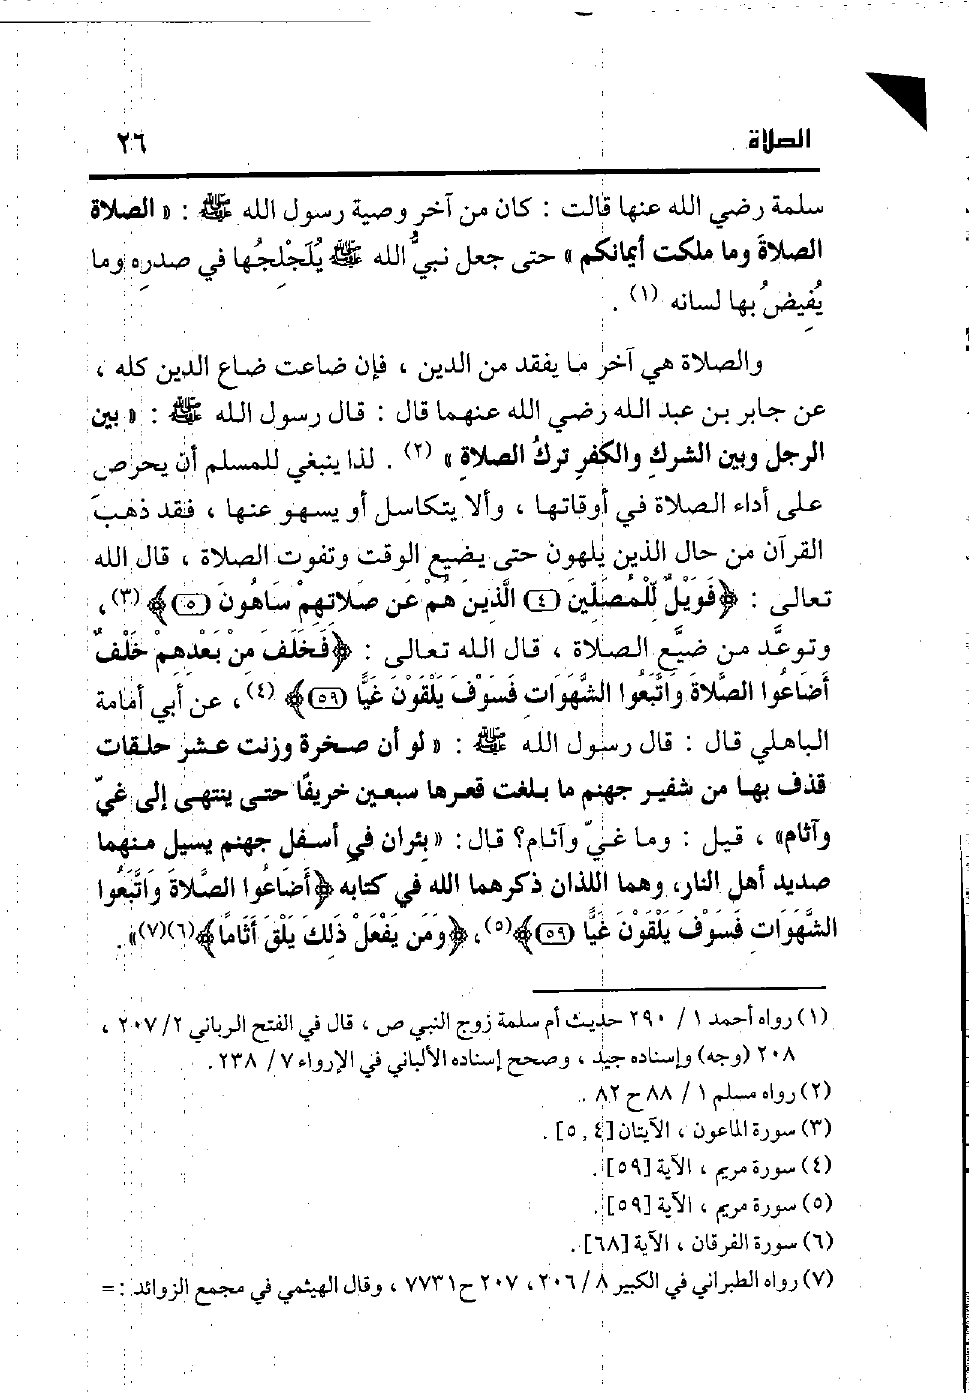 الصلاة
٢٦
سلمة رضي الله عنها قالت : كان من آخر وصية رسول الله ﷺ : « الصلاة
الصلاةَ وما ملكت أيمانكم » حتى جعل نبيُّ الله ﷺ يُلَجْلِجُها في صدرِه وما
يُفيضُ بها لسانه (١) .
والصلاة هي آخر ما يفقد من الدين ، فإن ضاعت ضاع الدين كله ،
عن جابر بن عبد الله رضي الله عنهما قال : قال رسول الله ﷺ : « بين
الرجل وبين الشركِ والكفرِ تركُ الصلاةِ » (٢) . لذا ينبغي للمسلم أن يحرص
على أداء الصلاة في أوقاتها ، وألا يتكاسل أو يسهو عنها ، فقد ذهبَ
القرآن من حال الذين يلهون حتى يضيع الوقت وتفوت الصلاة ، قال الله
تعالى : ﴿فَوَيْلٌ لِّلْمُصَلِّينَ (٤) الَّذِينَ هُمْ عَن صَلاتِهِمْ سَاهُونَ (٥)﴾(٣)،
وتوعَّد من ضيَّع الصلاة ، قال الله تعالى : ﴿فَخَلَفَ مِنْ بَعْدِهِمْ خَلْفٌ
أَضَاعُوا الصَّلاةَ وَاتَّبَعُوا الشَّهَوَاتِ فَسَوْفَ يَلْقَوْنَ غَيًّا (٥٩)﴾ (٤)، عن أبي أمامة
الباهلي قال : قال رسول الله ﷺ : « لو أن صخرة وزنت عشر خلقات
قذف بها من شفير جهنم ما بلغت قعرها سبعين خريفًا حتى ينتهى إلى غيّ
وآثام» ، قيل : وما غيّ وآثام؟ قال: « بئران في أسفل جهنم يسيل منهما
صديد أهل النار، وهما اللذان ذكرهما الله في كتابه ﴿أَضَاعُوا الصَّلاةَ وَاتَّبَعُوا
الشَّهَوَاتِ فَسَوْفَ يَلْقَوْنَ غَيًّا (٥٩)﴾(٥)، ﴿وَمَن يَفْعَلْ ذَلِكَ يَلْقَ أَثَامًا﴾(٦)(٧)».
(١) رواه أحمد ١ / ٢٩٠ حديث أم سلمة زوج النبي ص ، قال في الفتح الرباني ٢ / ٢٠٧ ،
٢٠٨ (وجه) وإسناده جيد ، وصحح إسناده الألباني في الإرواء ٧ / ٢٣٨ .
(٢) رواه مسلم ١ / ٨٨ ح ٨٢ .
(٣) سورة الماعون ، الآيتان [٤ , ٥] .
(٤) سورة مريم ، الآية [٥٩] .
(٥) سورة مريم ، الآية [٥٩] .
(٦) سورة الفرقان ، الآية [٦٨] .
(٧) رواه الطبراني في الكبير ٨ / ٢٠٦ ، ٢٠٧ ح ٧٧٣١ ، وقال الهيثمي في مجمع الزوائد : =